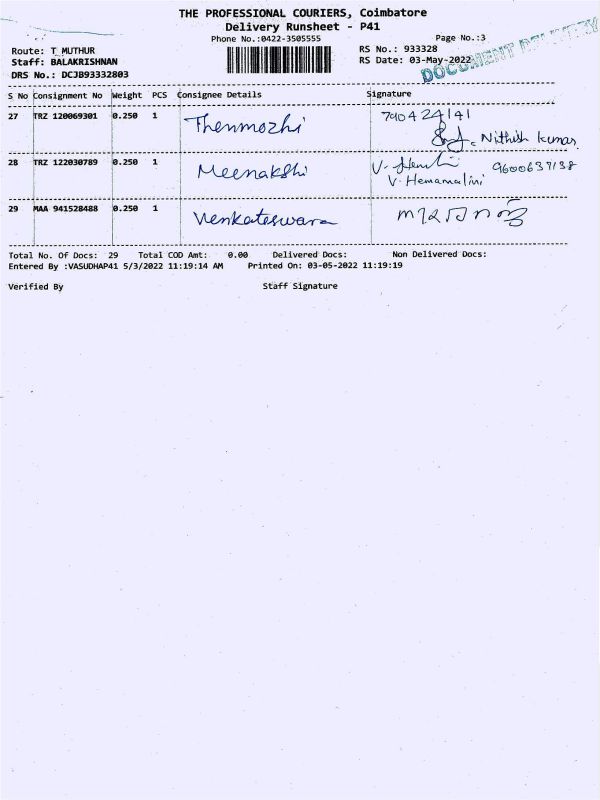 THE PROFESSIONAL COURIERS, Coimbatore
Delivery Runsheet - P41
Phone No.:0422-3505555
Page No.:3
Route: T_MUTHUR
RS No.: 933328
Staff: BALAKRISHNAN
RS Date: 03-May-2022
DRS No.: DCJB93332803
DOCUMENT DELIVERY
S No Consignment No Weight PCS Consignee Details Signature
27 TRZ 120069301 0.250 1 Thenmozhi
Nithish kumar
28 TRZ 122030789 0.250 1 Meenakshi 9600637138
V. Hemamalini
29 MAA 941528488 0.250 1 Venkateswara
Total No. Of Docs: 29 Total COD Amt: 0.00 Delivered Docs: Non Delivered Docs:
Entered By :VASUDHAP41 5/3/2022 11:19:14 AM Printed On: 03-05-2022 11:19:19
Verified By Staff Signature